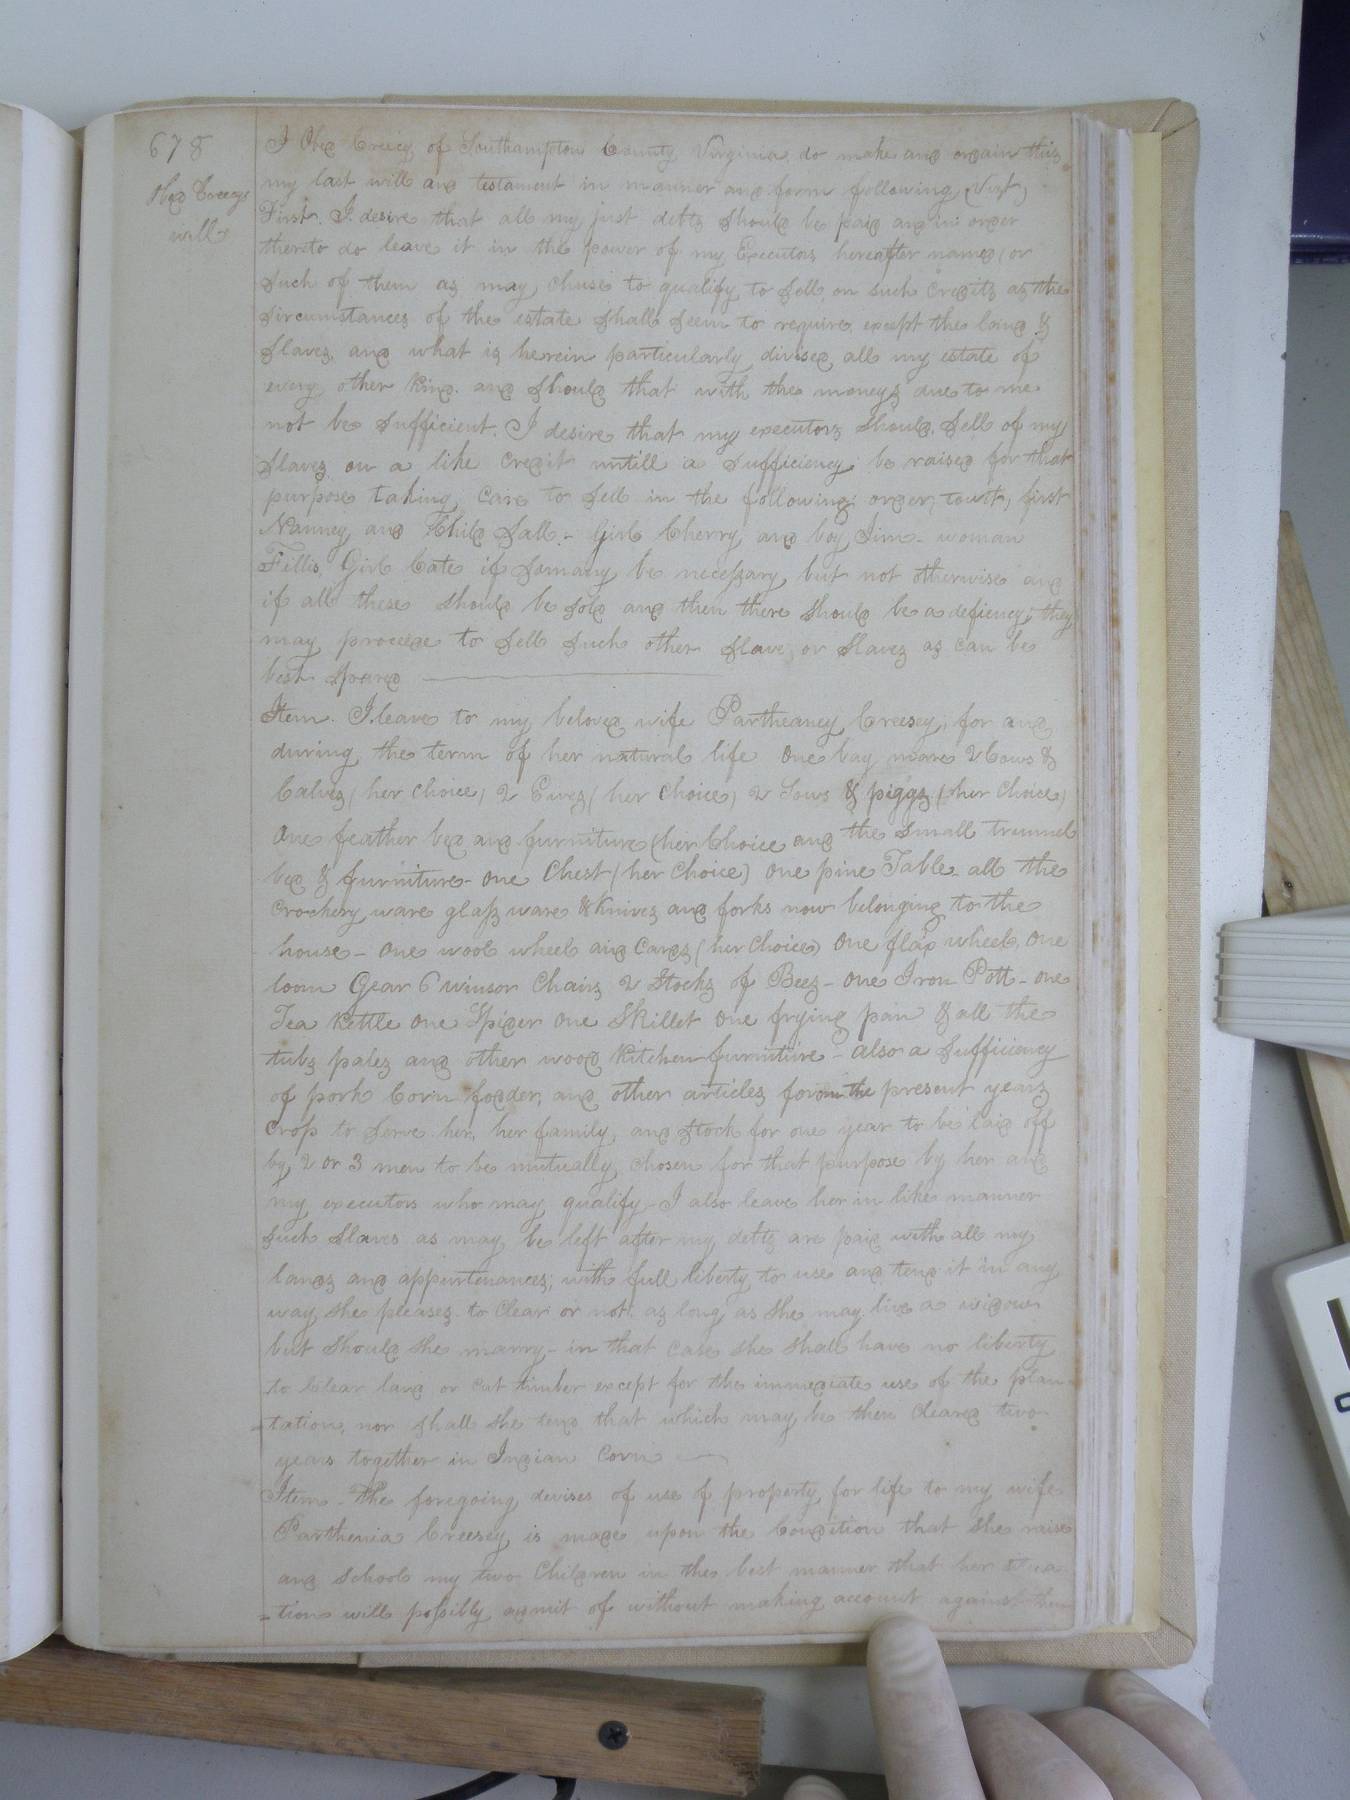 678
Creecys
will
I Obed Creecy of Southampton County Virginia do make and ordain this
my last will and testament in manner and form following (Vizt)
First. I desire that all my just debts should be paid and in order
thereto do leave it in the power of my Executors hereafter named (or
such of them as may chuse to qualify to sell on such Credits as the
circumstances of the estate shall seem to require, except the land &
slaves, and what is herein particularly divised, all my estate of
every other kind. and should that with the moneys due to me
not be sufficient. I desire that my executors should sell of my
slaves on a like credit untill a sufficiency be raised for that
purpose taking care to sell in the following order, towit, first
Nanney and Child Sall - Girl Cherry and boy Jim - woman
Fillis, Girl Cate if somany be necessary but not otherwise and
if all these should be sold and then there should be a defiency; they
may proceede to sell such other slave or slaves as can be
best spared
Item. I leave to my beloved wife Partheaney Creesey, for and
during the term of her natural life One bay mare 2 Cows &
Calves (her choice) 2 Ewes (her choice) 2 Sows & piggs (her choice)
One feather bed and furniture (her Choice and the small trunnel
bed & furniture - one Chest (her choice) one pine Table - all the
crockery ware glass ware & knives and forks now belonging to the
house - one wool wheel and Cards (her choice) One flax wheel, one
loom Gear 6 winsor Chairs 2 Stocks of Bees - one Iron Pott - one
Tea Kettle one Spider one Skillet one frying pan & all the
tubs pales and other wood Kitchen furniture - also a sufficiency
of pork Corn fodder, and other articles from the present years
crop to serve her, her family, and stock for one year to be laid off
by 2 or 3 men to be mutually chosen for that purpose by her and
my executors who may qualify - I also leave her in like manner
such slaves as may be left after my debts are paid with all my
lands and appurtenances, with full liberty to use and tend it in any
way she pleases to clear or not as long as she may live a widow
but should she marry - in that case she shall have no liberty
to clear land or cut timber except for the immediate use of the plan
tation, nor shall she tend that which may be then cleared two
years together in Indian Corn
Item - The foregoing devises of use of property for life to my wife
Parthenia Creesey is made upon the Condition that she raise
and school my two Children in the best manner that her situa
tion will possibly admit of without making account against them